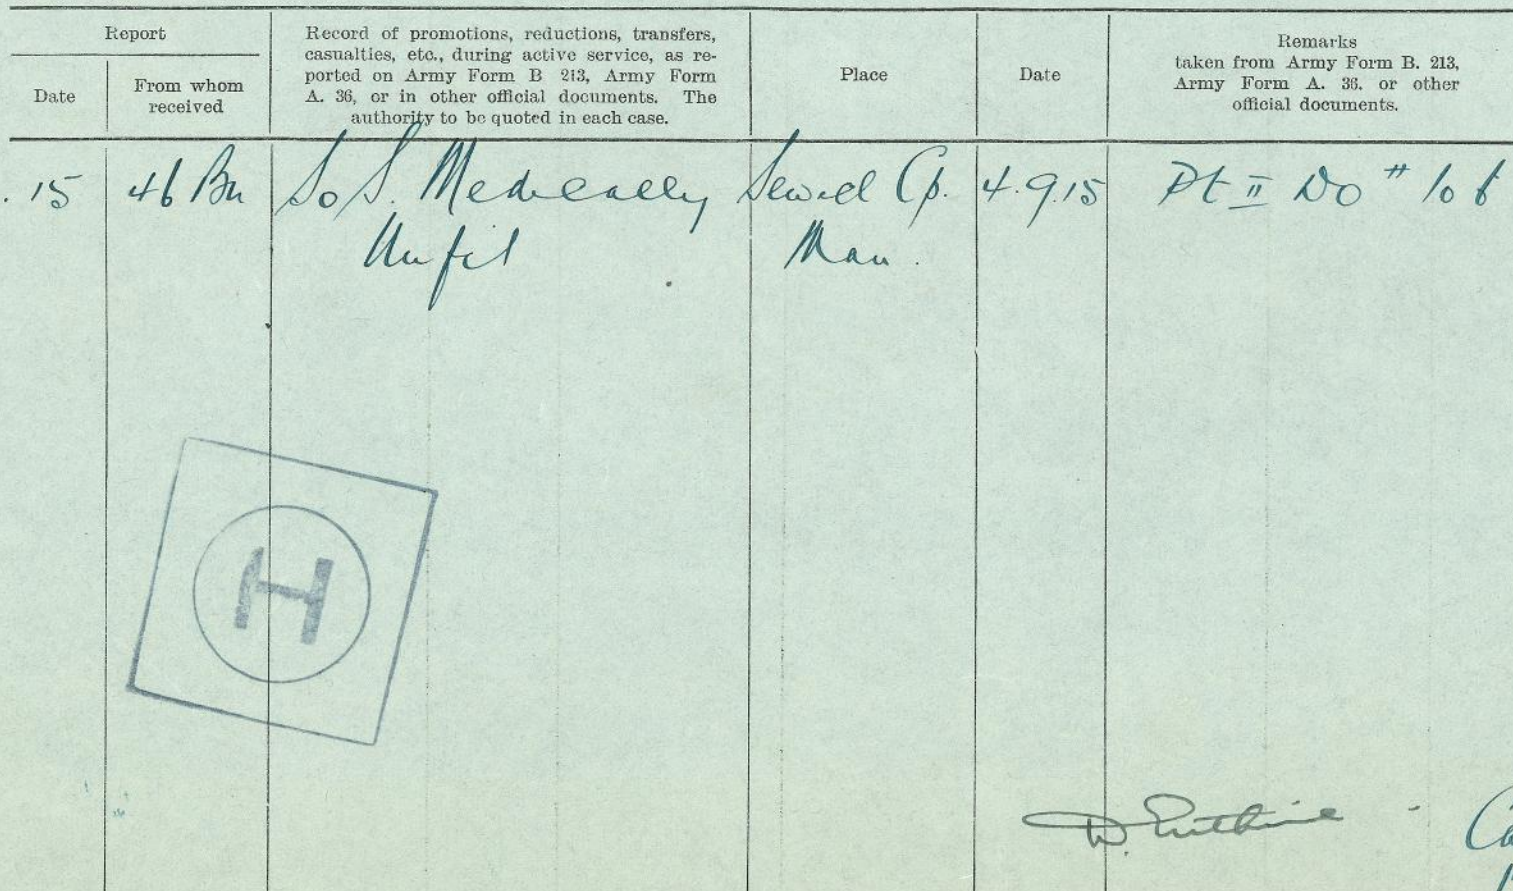 Report
Record of promotions, reductions, transfers,
casualties, etc., during active service, as re-
ported on Army Form B 213, Army Form
A. 36, or in other official documents. The
authority to be quoted in each case.
Place
Date
Remarks
taken from Army Form B. 213,
Army Form A. 36, or other
official documents.
Date
From whom
received
. 15 46 Bn SoS. Medically Sewell Cp. 4.9.15 Pt II DO # 106
Unfit Man.
H